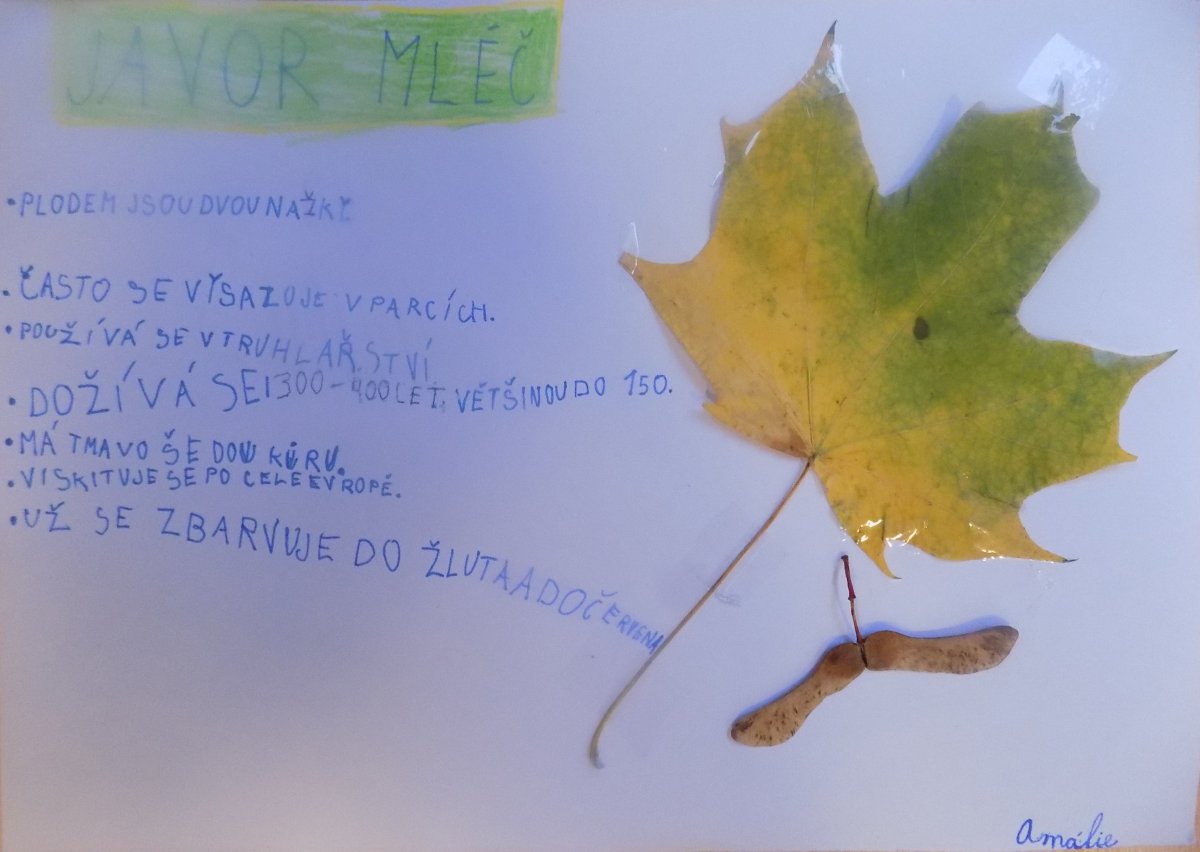 JAVOR MLÉČ
• PLODEM JSOU DVOUNAŽKY
• ČASTO SE VYSAZUJE V PARCÍCH.
• POUŽÍVÁ SE V TRUHLAŘSTVÍ
• DOŽÍVÁ SE I 300-400 LET, VĚTŠINOU DO 150.
• MÁ TMAVO ŠEDOU KŮRU.
• VISKITUJE SE PO CELE EVROPĚ.
• UŽ SE ZBARVUJE DO ŽLUTA A DO ČERVENA
Amálie